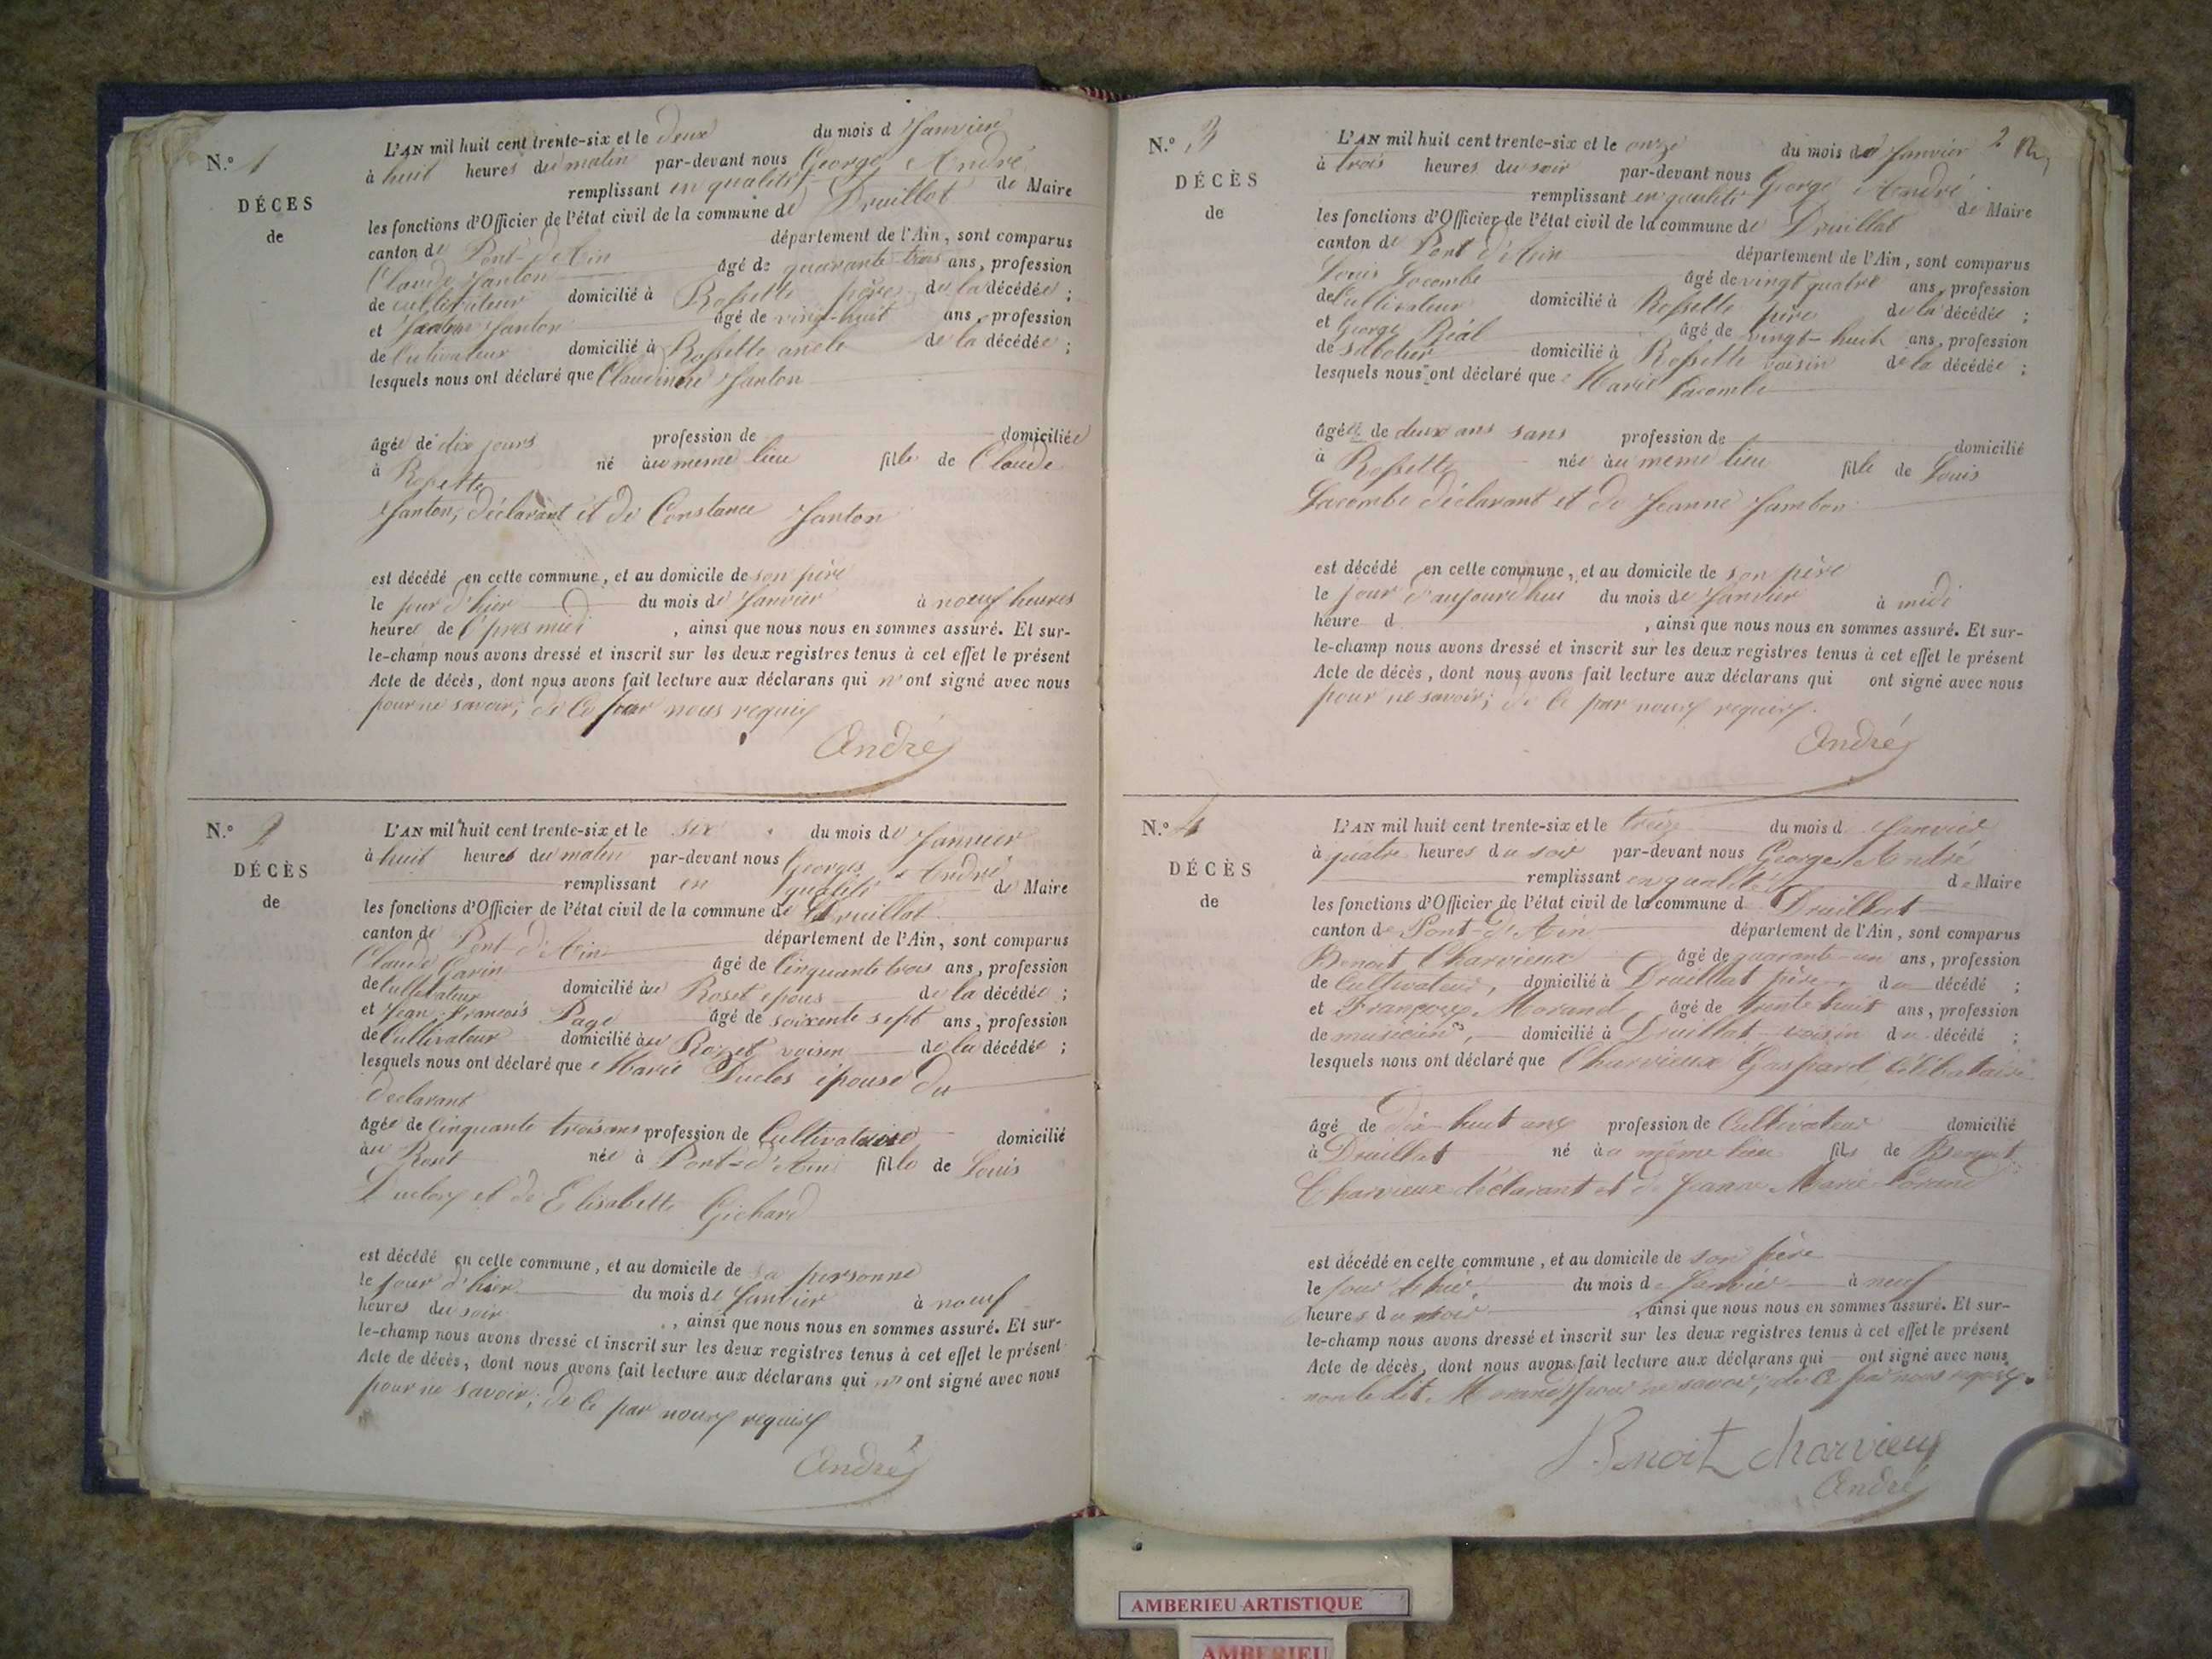 N.° 1
DÉCES
de
L'AN mil huit cent trente-six et le deux du mois d Janvier
à huit heures du matin par-devant nous George André
remplissant en qualité de Maire
les fonctions d'Officier de l'état civil de la commune de Druillat
canton de Pont-d'Ain département de l'Ain, sont comparus
Claude Janton âgé de quarante trois ans, profession
de cultivateur domicilié à Rossette père de la décédée ;
et Janton âgé de vingt-huit ans, profession
de Cultivateur domicilié à Rossette oncle de la décédée ;
lesquels nous ont déclaré que Claudine Janton
âgée de dix jours profession de domiciliée
à Rossette né au meme lieu fille de Claude
Janton, déclarant et de Constance Janton
est décédé en cette commune, et au domicile de son père
le jour d'hier du mois de Janvier à noeuf heures
heures de l'pres midi, ainsi que nous nous en sommes assuré. Et sur-
le-champ nous avons dressé et inscrit sur les deux registres tenus à cet effet le présent
Acte de décès, dont nous avons fait lecture aux déclarans qui n'ont signé avec nous
pour ne savoir; de ce par nous requis
André
N.° 2
DÉCÈS
de
L'AN mil huit cent trente-six et le six du mois de Janvier
à huit heures du matin par-devant nous Georges André
remplissant en qualité de Maire
les fonctions d'Officier de l'état civil de la commune de Druillat
canton de Pont-d'Ain département de l'Ain, sont comparus
Claude Garin âgé de Cinquante trois ans, profession
de Cultivateur domicilié au Roset epous de la décédée ;
et Jean-françois Page âgé de soixente sept ans, profession
de Cultivateur domicilié au Roset voisin de la décédée ;
lesquels nous ont déclaré que Marie Duclos épouse du
declarant
âgée de Cinquante trois ans profession de Cultivatrice domicilié
au Roset née à Pont-d'Ain fille de Louis
Duclos et de Elisabette Gichard
est décédé en cette commune, et au domicile de sa personne
le jour d'hier du mois de Janvier à noeuf
heures du soir, ainsi que nous nous en sommes assuré. Et sur-
le-champ nous avons dressé et inscrit sur les deux registres tenus à cet effet le présent
Acte de décès, dont nous avons fait lecture aux déclarans qui n'ont signé avec nous
pour ne savoir; de ce par nous requis
André
N.° 3
DÉCÈS
de
L'AN mil huit cent trente-six et le onze du mois de Janvier 2
à trois heures du soir par-devant nous George André
remplissant en qualité de Maire
les fonctions d'Officier de l'état civil de la commune de Druillat
canton de Pont d'Ain département de l'Ain, sont comparus
Louis Lacombe âgé de vingt quatre ans, profession
de Cultivateur domicilié à Rossette père de la décédée ;
et George Réal âgé de vingt-huit ans, profession
de sabotier domicilié à Rossette voisin de la décédée ;
lesquels nous ont déclaré que Marie Lacombe
âgée de deux ans sans profession de domicilié
à Rossette née au meme lieu fille de Louis
Lacombe déclarant et de Jeanne Jambon
est décédé en cette commune, et au domicile de son père
le jour d'aujourdhui du mois de Janvier à midi
heure d, ainsi que nous nous en sommes assuré. Et sur-
le-champ nous avons dressé et inscrit sur les deux registres tenus à cet effet le présent
Acte de décès, dont nous avons fait lecture aux déclarans qui ont signé avec nous
pour ne savoir; de ce par nous requis.
André
N.° 4
DÉCÈS
de
L'AN mil huit cent trente-six et le treize du mois d Janvier
à quatre heures du soir par-devant nous George André
remplissant en qualité de Maire
les fonctions d'Officier de l'état civil de la commune d Druillat
canton de Pont-d'Ain département de l'Ain, sont comparus
Benoit Charvieux âgé de quarante-un ans, profession
de Cultivateur, domicilié à Druillat père du décédé ;
et François Morand âgé de trente huit ans, profession
de musicien, domicilié à Druillat voisin du décédé ;
lesquels nous ont déclaré que Charvieux Gaspard Célibataire
âgé de dix huit ans profession de Cultivateur domicilié
à Druillat né au même lieu fils de Benoit
Charvieux déclarant et de Jeanne Marie
est décédé en cette commune, et au domicile de son père
le jour d'hier, du mois de Janvier à neuf
heures du soir, ainsi que nous nous en sommes assuré. Et sur-
le-champ nous avons dressé et inscrit sur les deux registres tenus à cet effet le présent
Acte de décès, dont nous avons fait lecture aux déclarans qui ont signé avec nous
non le dit Morand pour ne savoir; de ce par nous requis.
Benoit charvieux
André
AMBERIEU ARTISTIQUE
AMBERIEU